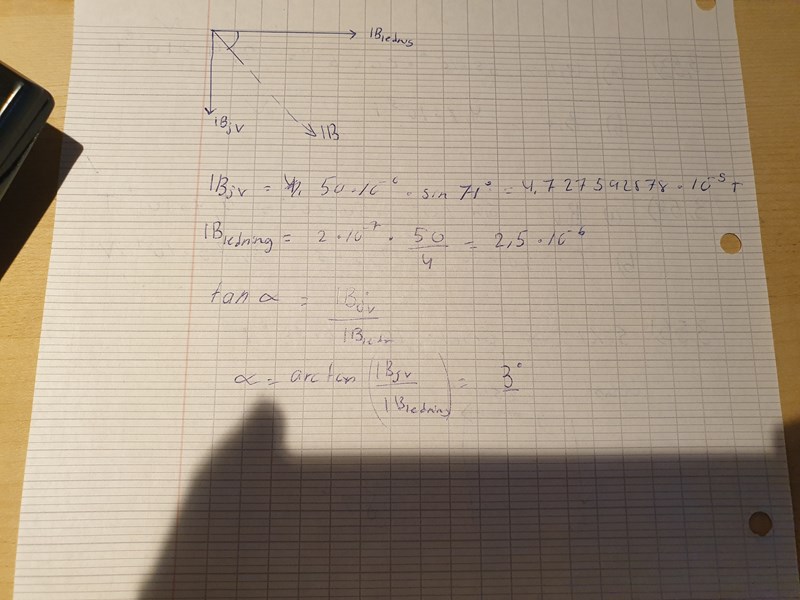 |B ledning
|B jv
|B
|B jv = 50 · 10^-6 · sin 71° = 4,727592878 · 10^-5 T
|B ledning = 2 · 10^-7 · 50/4 = 2,5 · 10^-6
tan α = |B jv / |B ledn
α = arctan (|B jv / |B ledning) = 3°